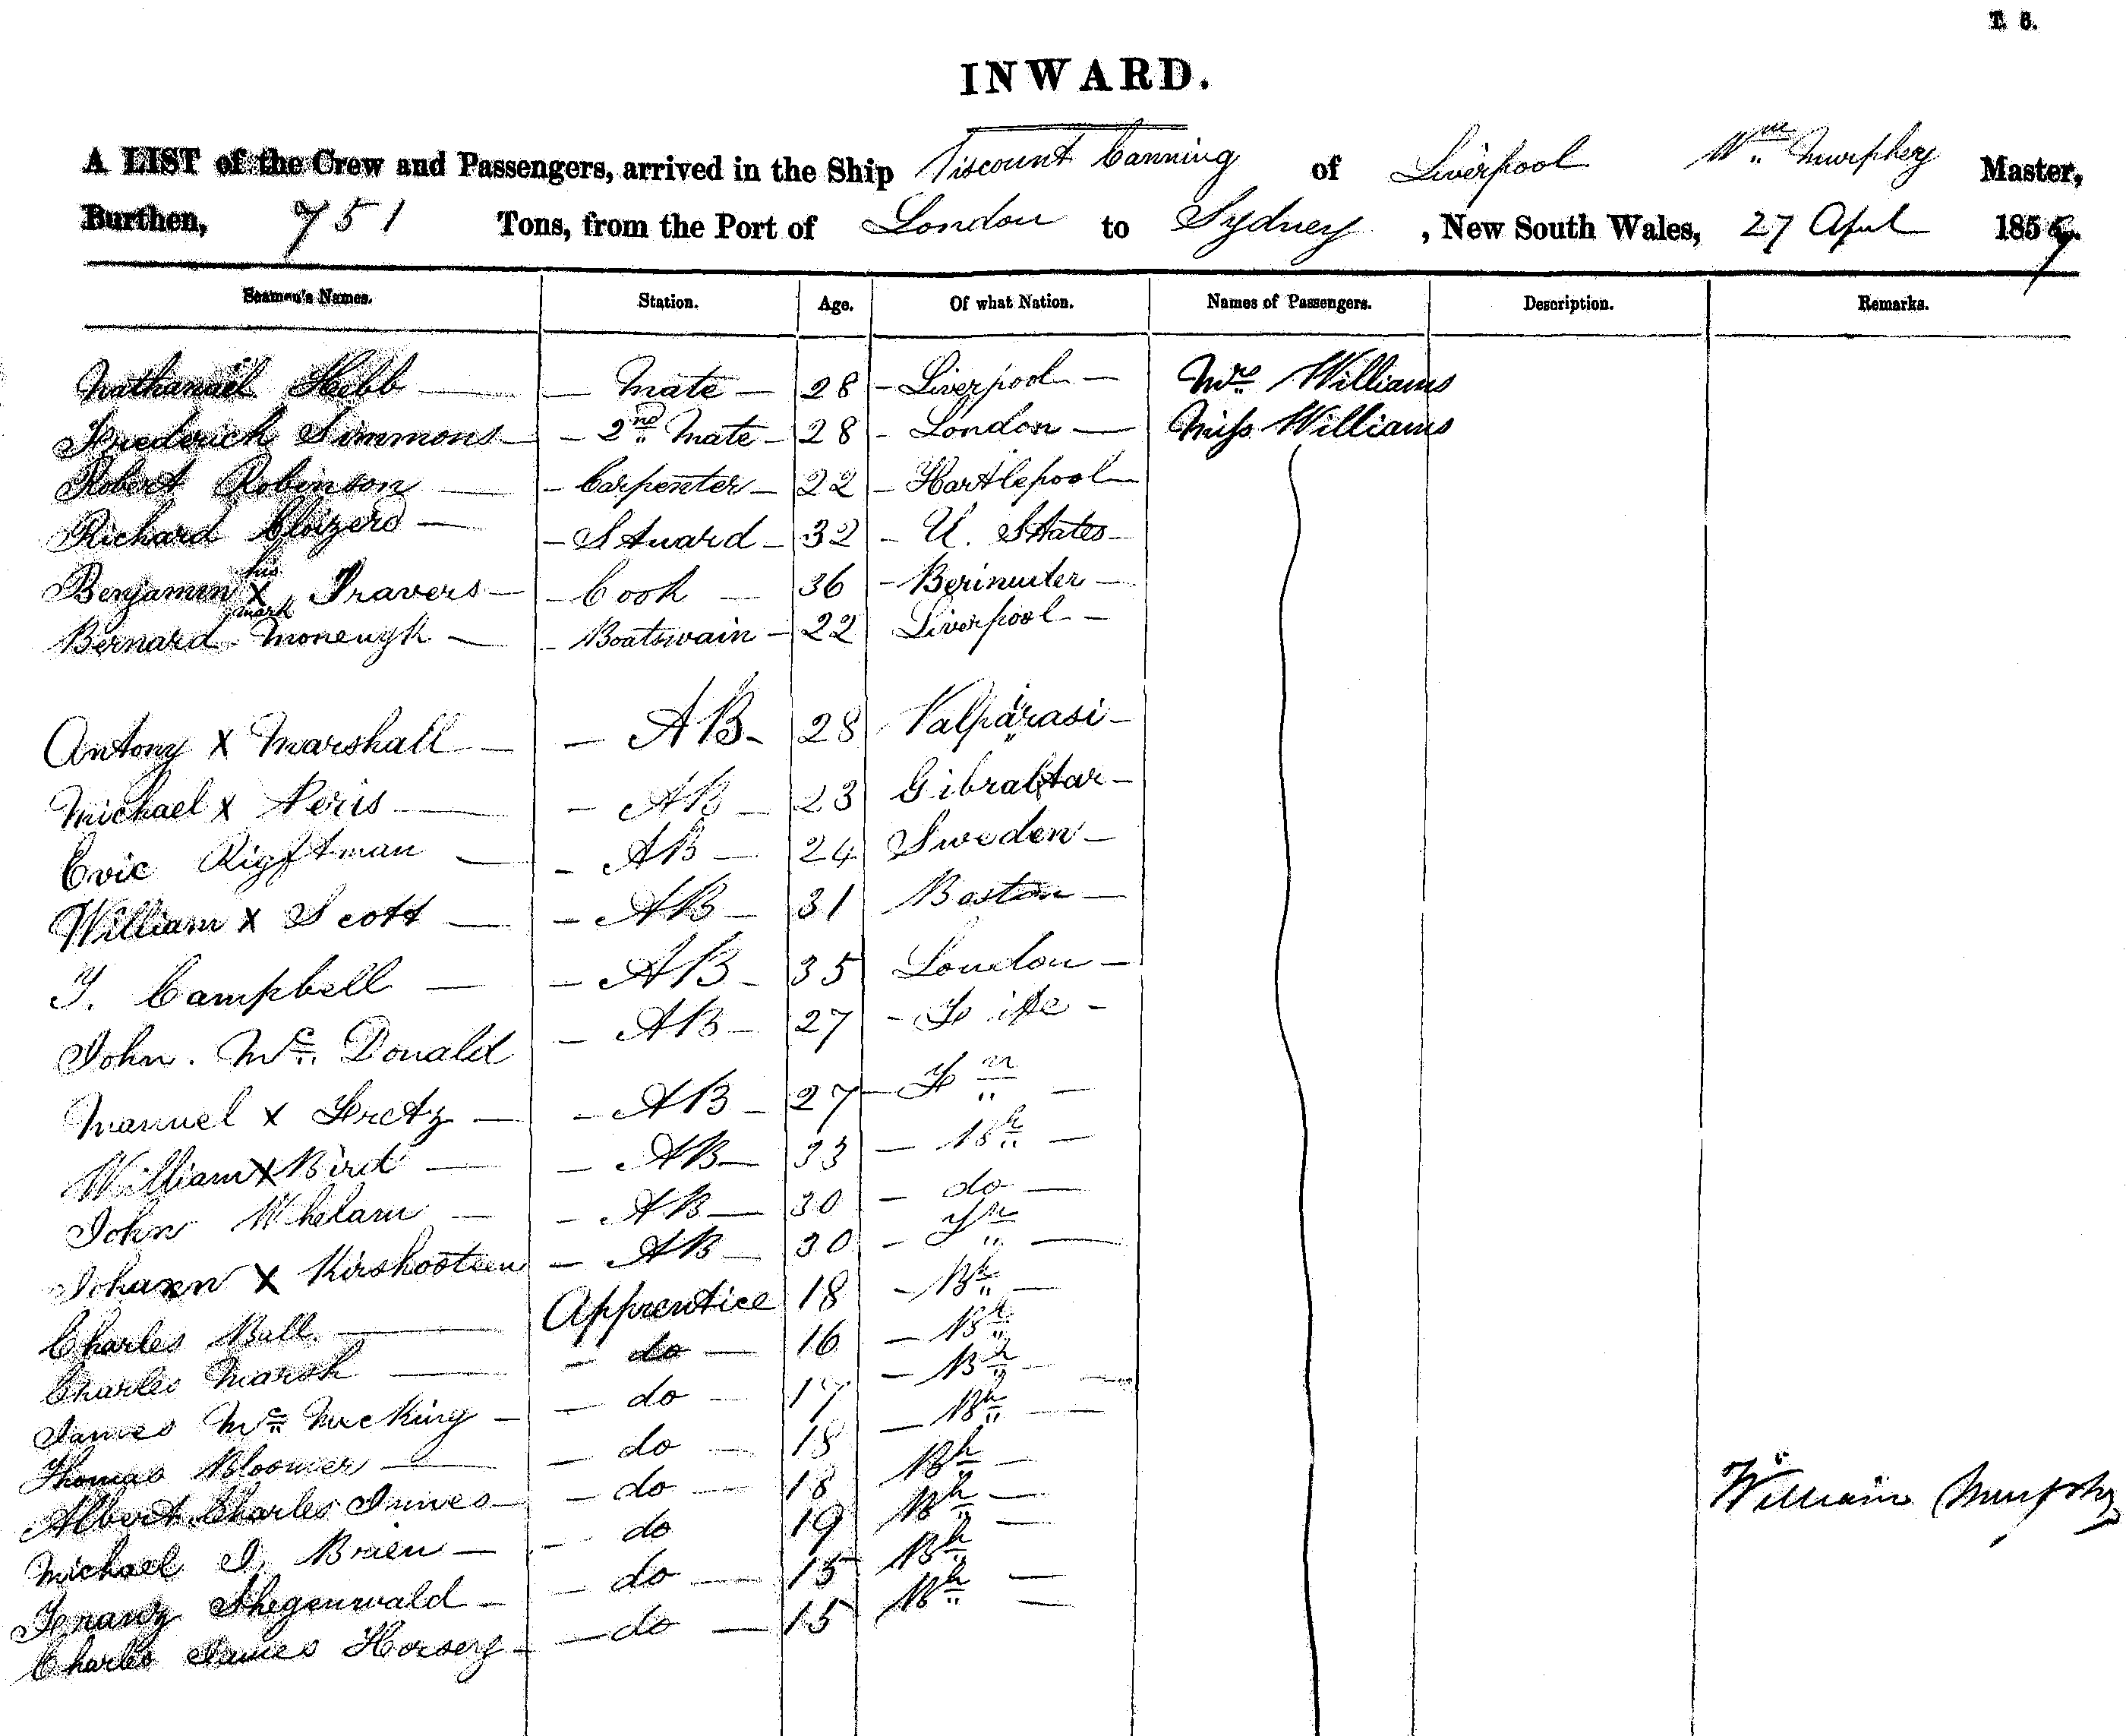 T. 6.
INWARD.
A LIST of the Crew and Passengers, arrived in the Ship Viscount Canning of Liverpool Wm Murphey Master,
Burthen, 751 Tons, from the Port of London to Sydney, New South Wales, 27 April 1857
Seamen's Names. Station. Age. Of what Nation. Names of Passengers. Description. Remarks.
Nathanaël Hebb — Mate — 28 — Liverpool — Mrs Williams
Frederick Simmons — 2nd Mate — 28 — London — Miss Williams
Robert Robinson — Carpenter — 22 — Hartlepool —
Richard Cloizerd — Stuard — 32 — U. States —
Benjamin his X mark Travers — Cook — 36 — Berinuder —
Bernard Moneugh — Boatswain — 22 Liverpool —
Antony X Marshall — AB — 28 Valparasi —
Michael X Peris — AB — 23 Gibraltar —
Eric — AB — 24 Sweden —
William X Scott — AB — 31 Boston —
J. Campbell — AB — 35 London —
John. Mc Donald — AB — 27 — Fife —
Manuel X — AB — 27 — Fn —
William X Bird — AB — 33 — Bh —
John Whelam — AB — 30 — do —
Johann X Kirshosteen — AB — 30 — Fn —
Charles Ball — Apprentice 18 — Bh —
Charles Marsh — do — 16 — Bh
James Mc — do — 17 — Bh —
Thomas Bloomer — do — 18 — Bh —
Albert Charles — do — 18 Bh —
Michael Brien — do 19 Bh —
Shegenwald — do — 15 Bh —
Charles James Horsey — do — 15 Bh —
William Murphy